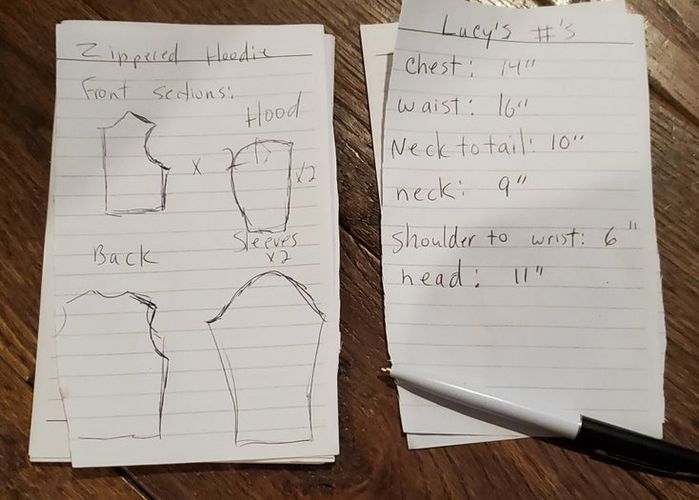 Zippered Hoodie
Front sections:
Hood
x
x2
Back
Sleeves
x2
Lucy's #'s
Chest: 14"
waist: 16"
Neck to tail: 10"
neck: 9"
Shoulder to wrist: 6"
head: 11"